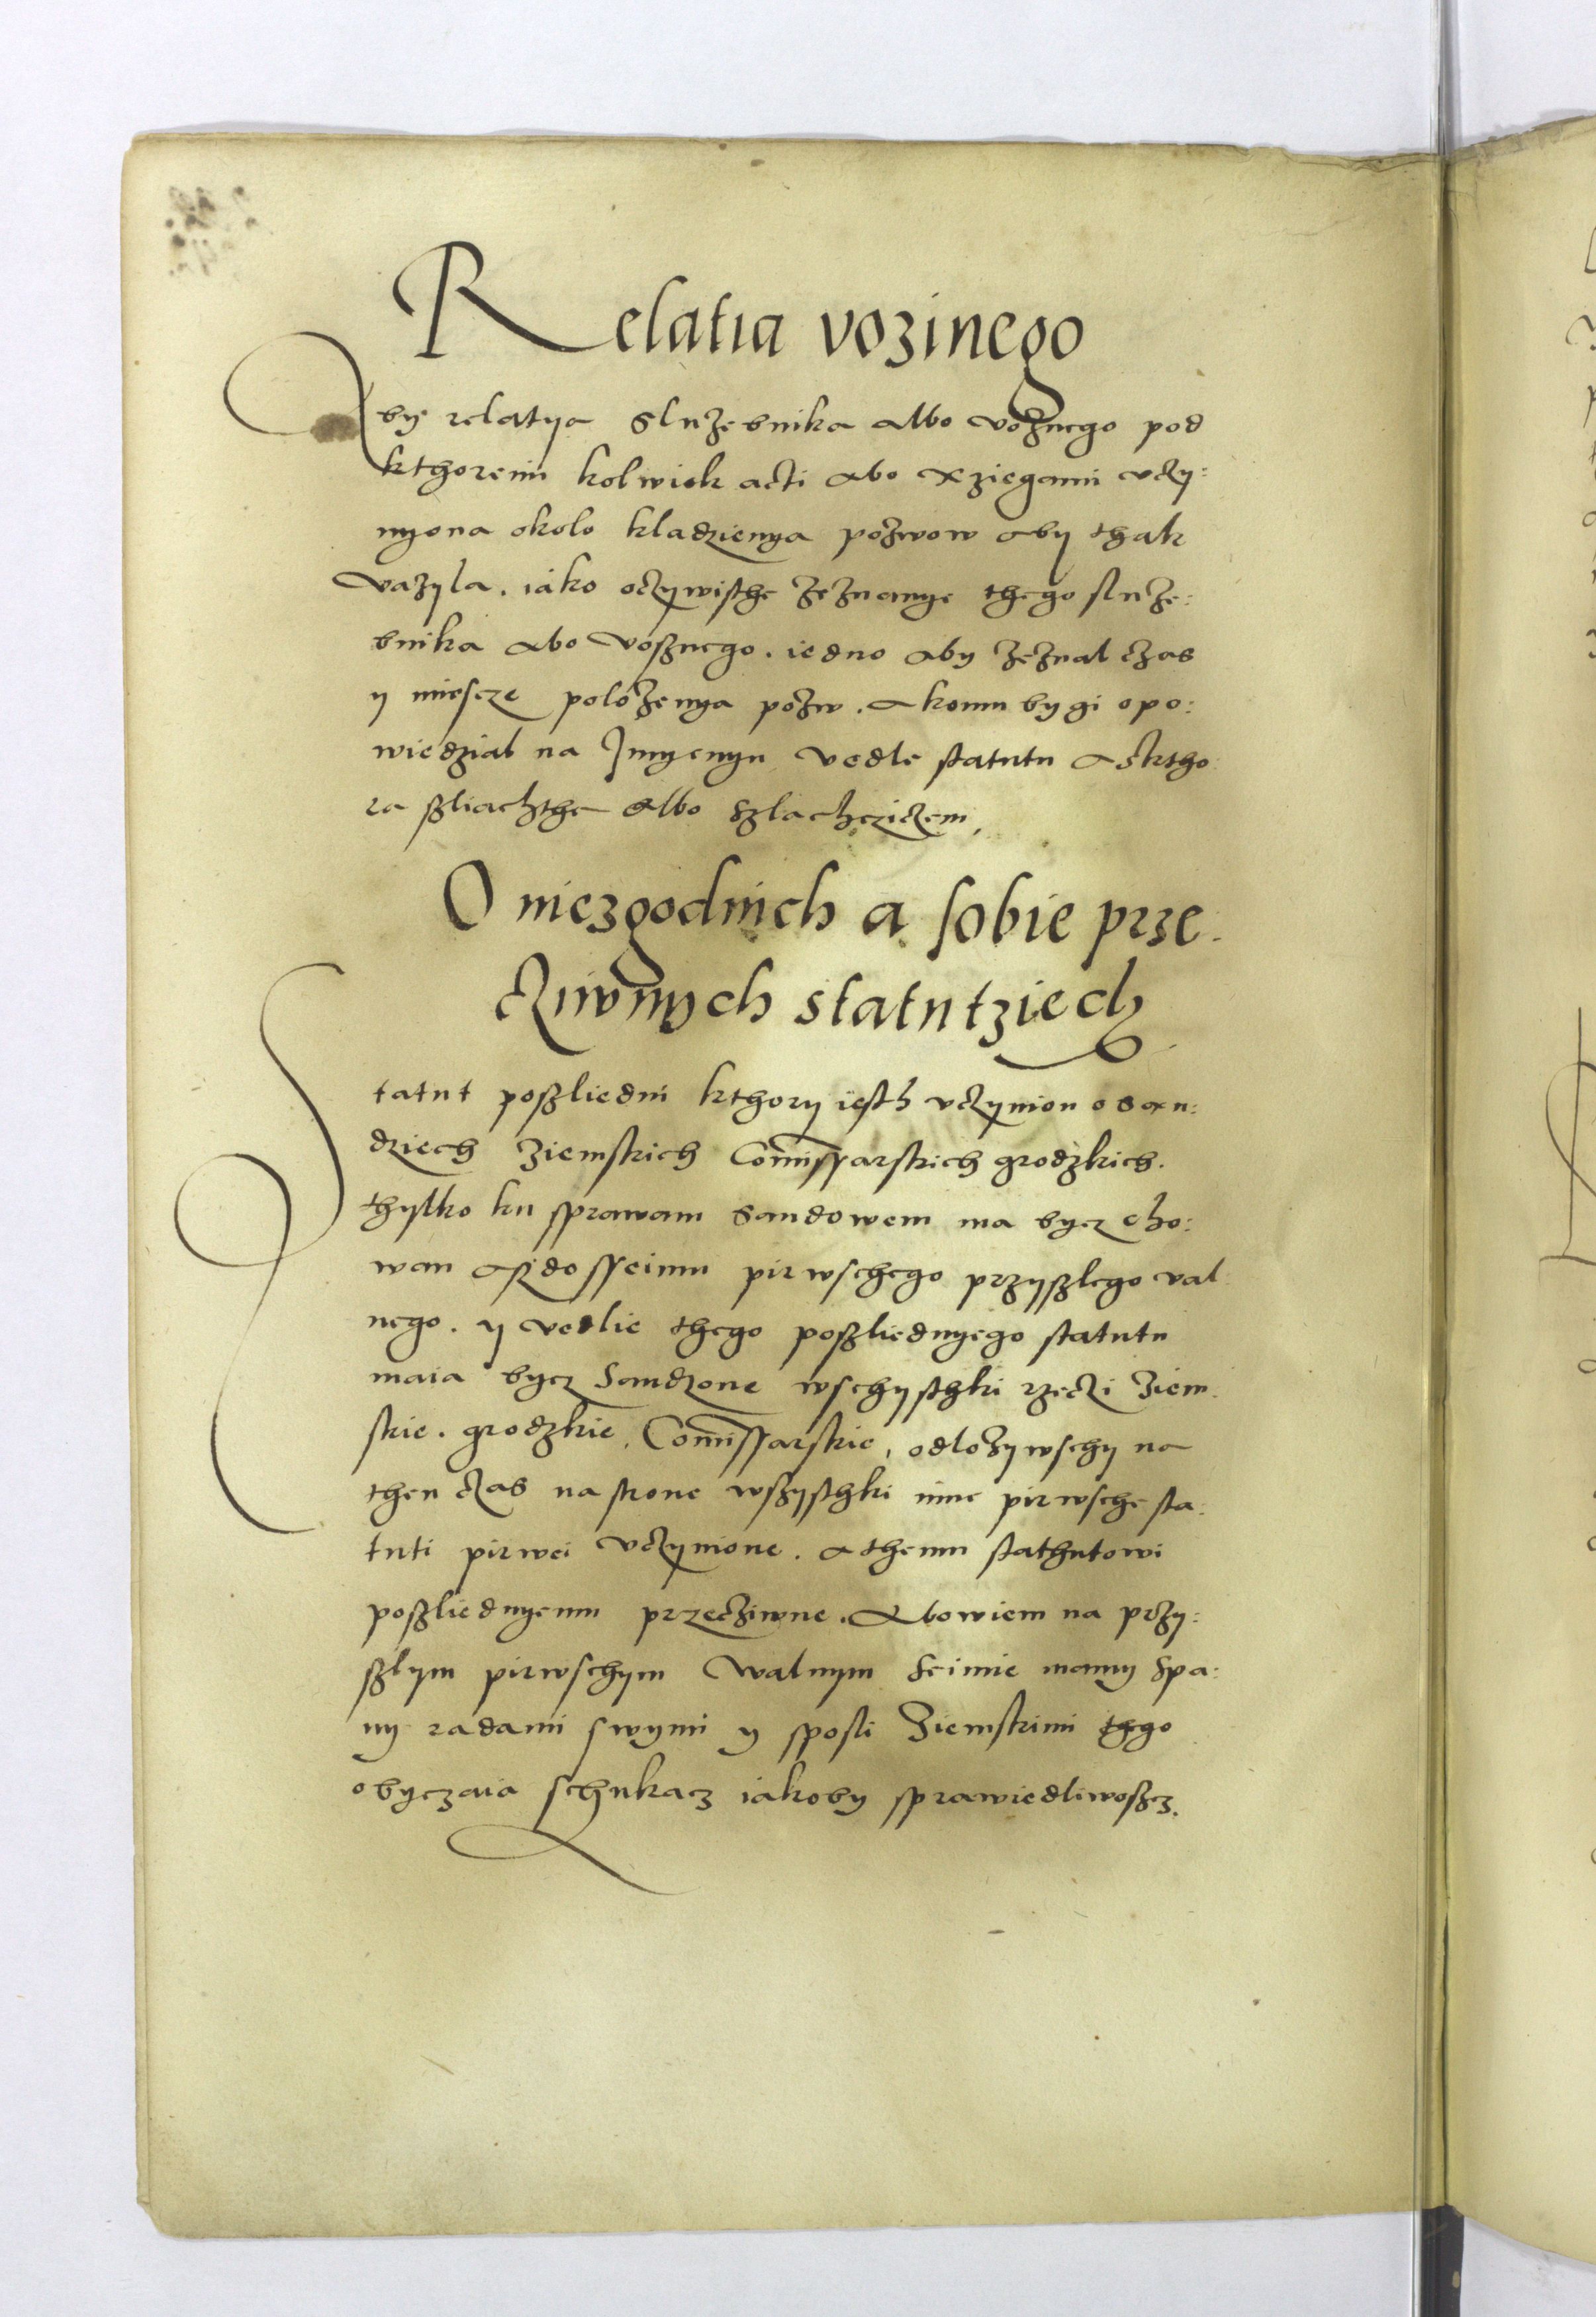 Relatia vozinego
Aby relatya Sluzebnika albo vożnego pod
kthoremi kolwiek acti abo xziegami vczy:
nyona okolo kladzienya pozwow aby thak
vazyla. iako oczywisthe zeznanye thego sluze:
bnika abo vosznego. iedno aby zeznal czas
y miescze polozenya pozw. a komu by gi opo:
wiedzial na Jmyenyu vedle statutu a sktho
ra szliachtha albo szlachczicem,
O niezgodnich a sobie prze.
cziwnych statutziech
Statut poszliedni kthory iesth vczynion o san:
dziech Ziemskich Comissarskich grodzkich.
thylko ku sprawam Sandowem ma bycz cho:
wan asz do sseimu pirwschego przyszlego val
nego. y vedlie thego poszliednyego statutu
maia bycz Sandzone wschysthki rzeczi Ziem.
skie. grodzkie. Comissarskie, odlozywschy na
then czas na strone wszysthki inne pirwsche sta:
tuti pirwei vczynione. a themu stathutowi
poszliednyemu przecziwne. Abowiem na przy:
szlym pirwschym Walnym Seimie mamy spa:
ny radami swymi y sposli Ziemskimi thego
obyczaia schukacz iakoby sprawiedliwoscz.